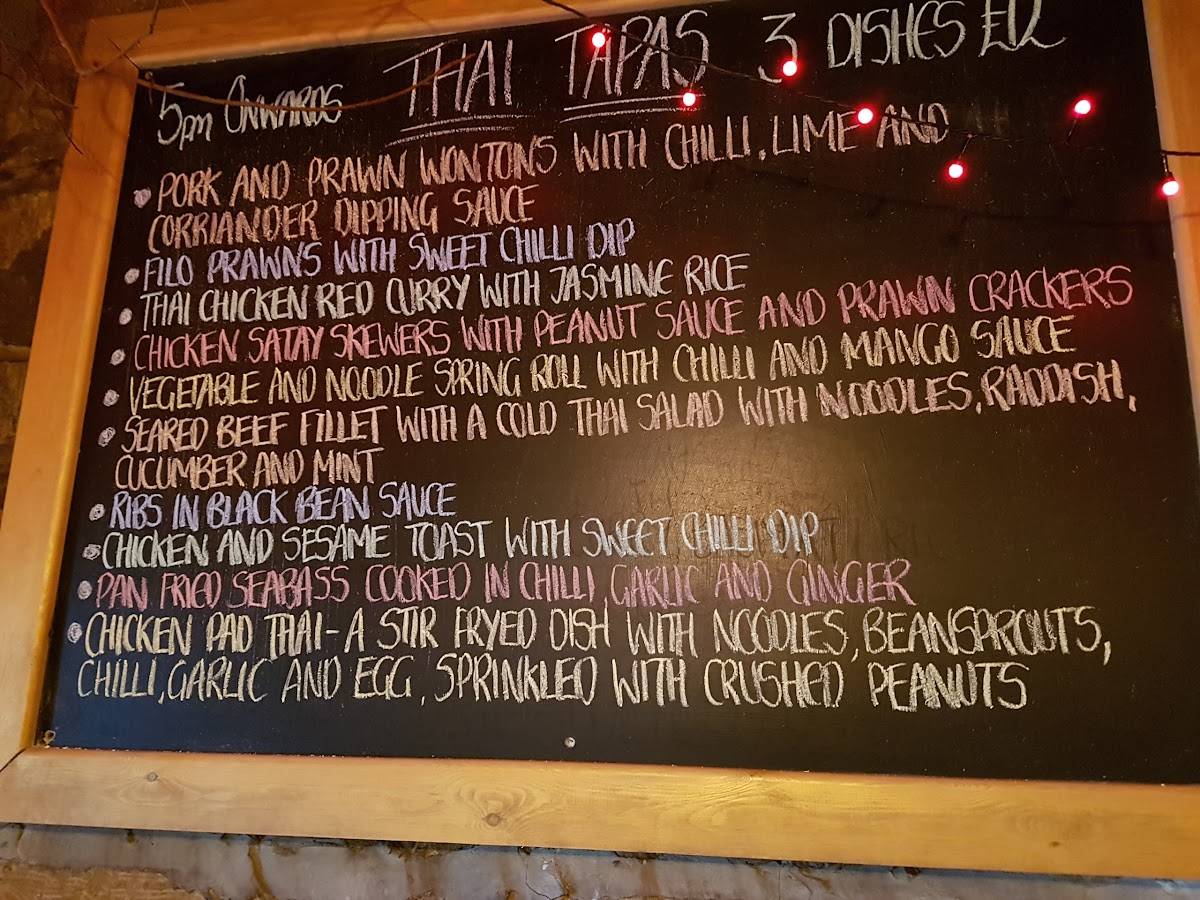 5pm ONWARDS THAI TAPAS 3 DISHES £12
• PORK AND PRAWN WONTONS WITH CHILLI, LIME AND
CORRIANDER DIPPING SAUCE
• FILO PRAWNS WITH SWEET CHILLI DIP
• THAI CHICKEN RED CURRY WITH JASMINE RICE
• CHICKEN SATAY SKEWERS WITH PEANUT SAUCE AND PRAWN CRACKERS
• VEGETABLE AND NOODLE SPRING ROLL WITH CHILLI AND MANGO SAUCE
• SEARED BEEF FILLET WITH A COLD THAI SALAD WITH NOODLES, RADDISH,
CUCUMBER AND MINT
• RIBS IN BLACK BEAN SAUCE
• CHICKEN AND SESAME TOAST WITH SWEET CHILLI DIP
• PAN FRIED SEABASS COOKED IN CHILLI, GARLIC AND GINGER
• CHICKEN PAD THAI - A STIR FRYED DISH WITH NOODLES, BEANSPROUTS,
CHILLI, GARLIC AND EGG, SPRINKLED WITH CRUSHED PEANUTS